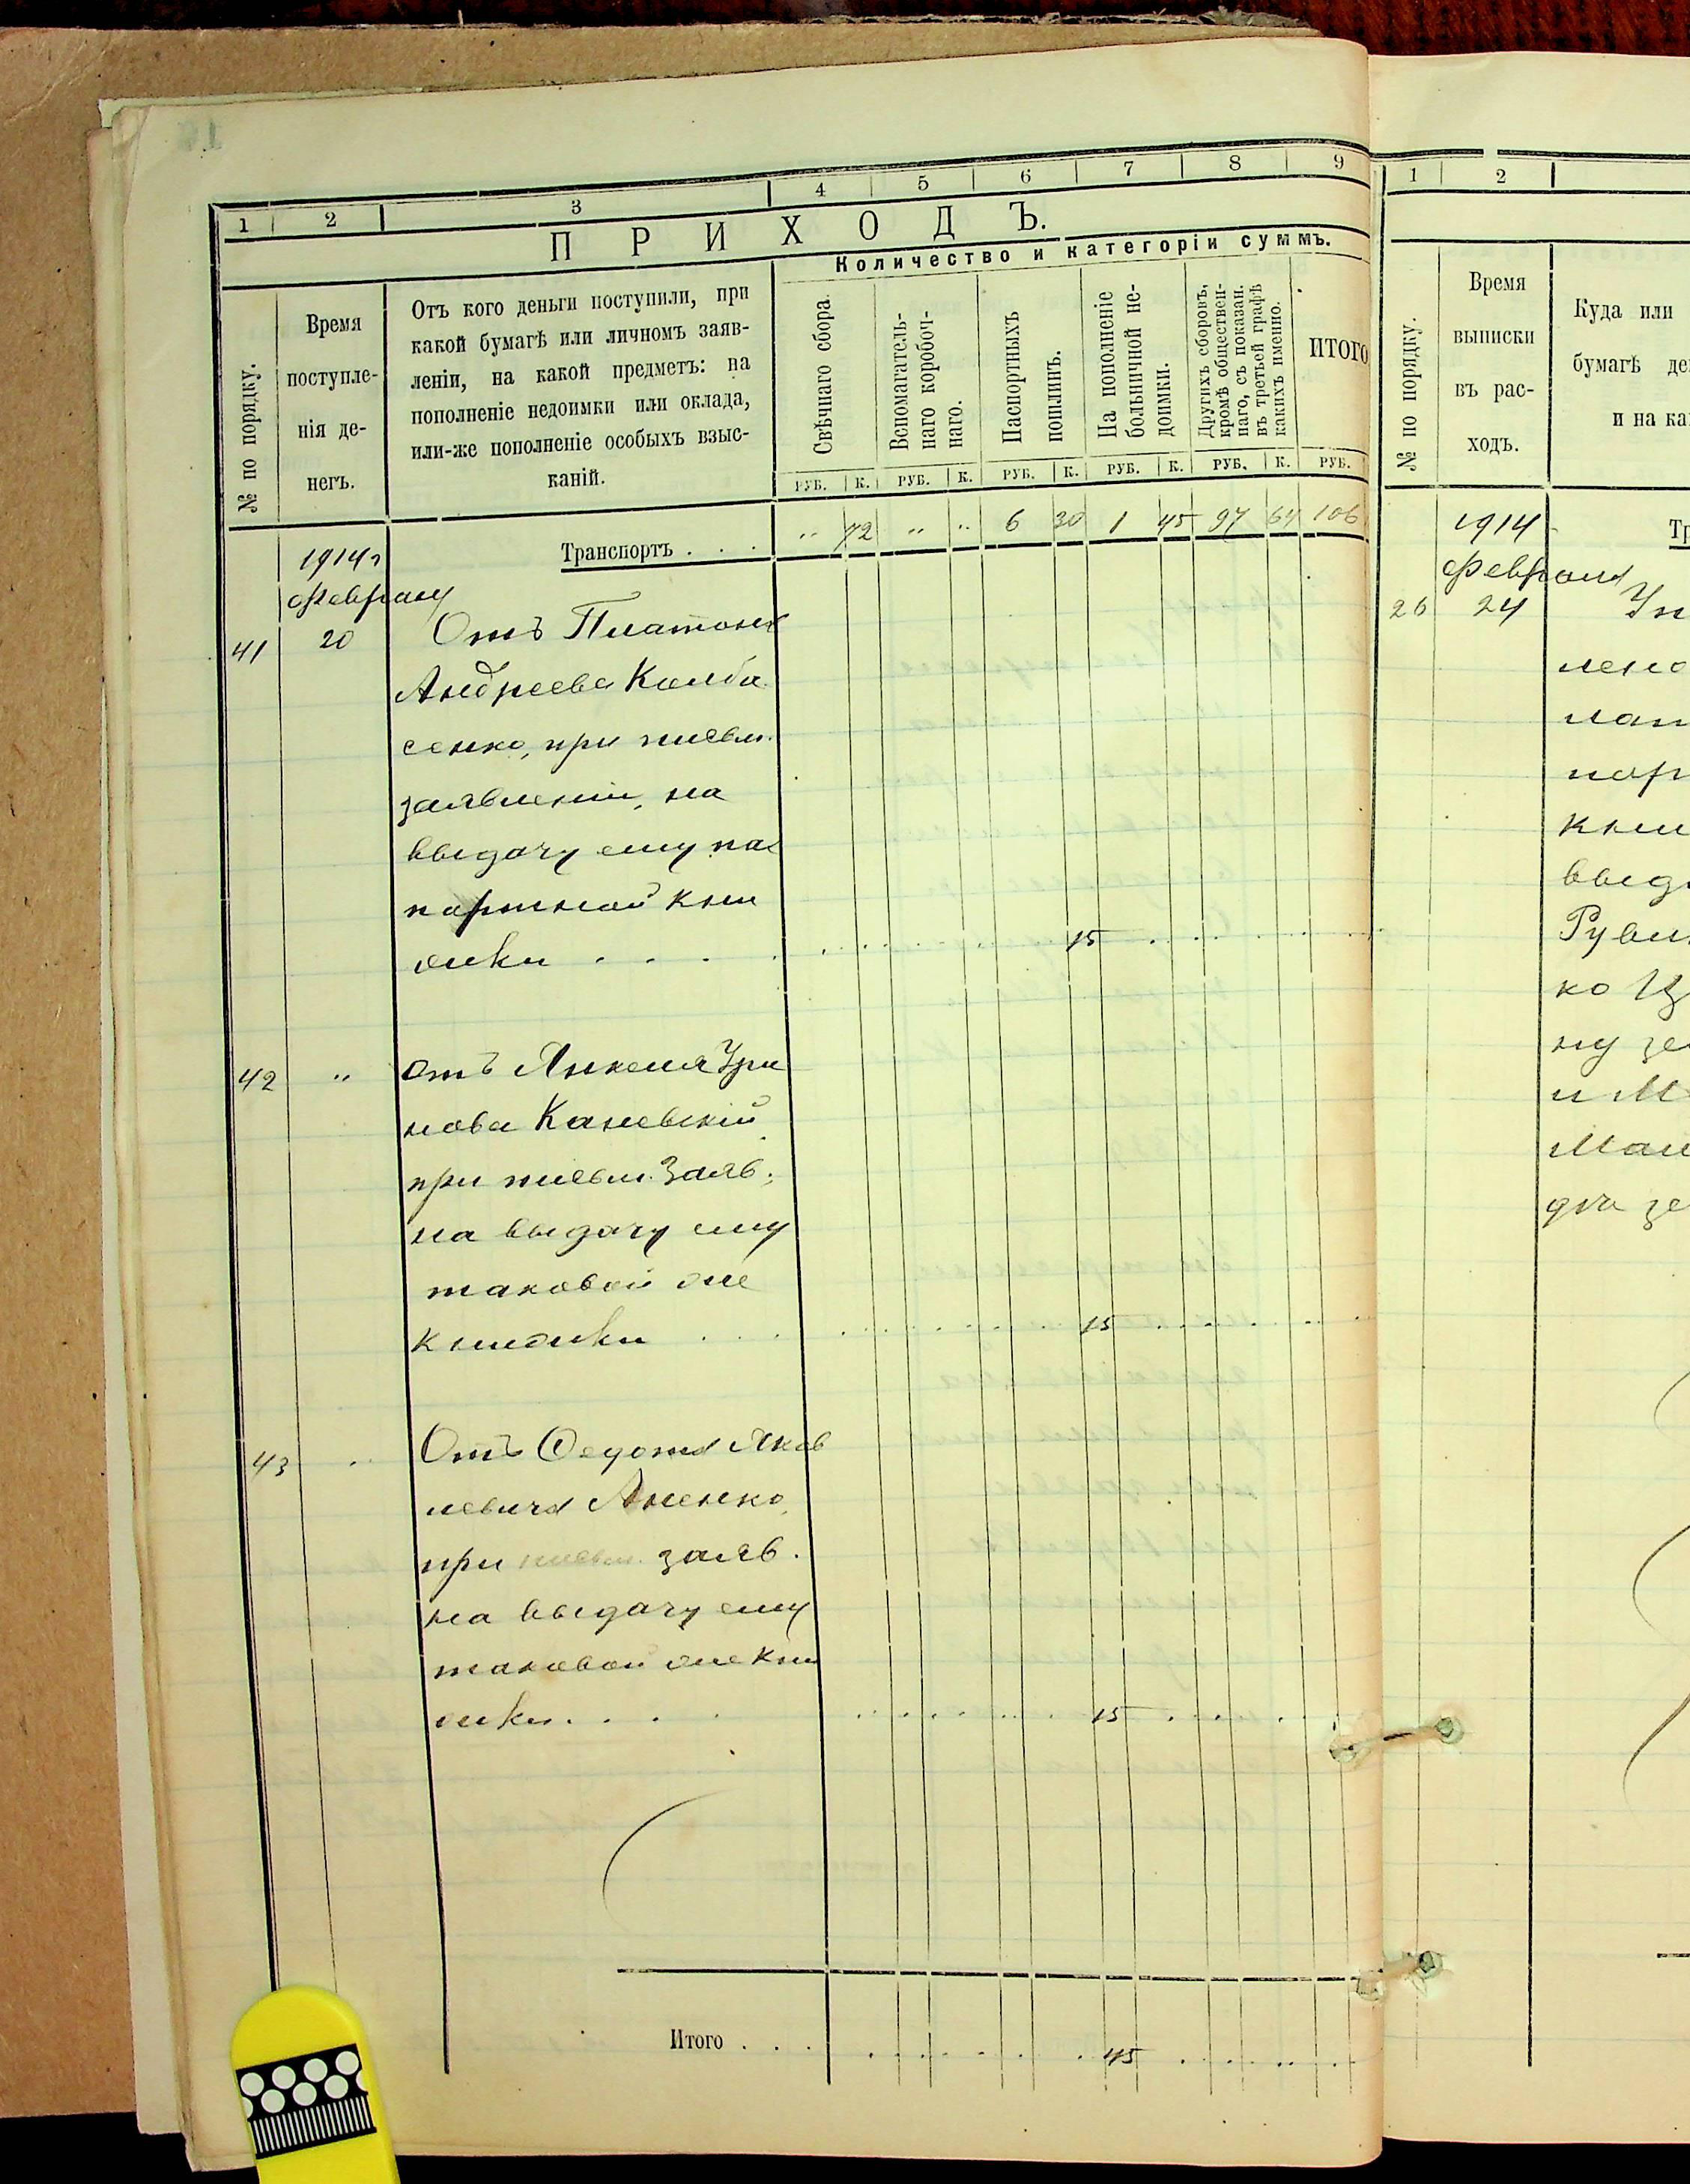 1 2 3 4 5 6 7 8 9
ПРИХОДЪ.
Количество и категоріи суммъ.
№ по порядку.
Время
поступле-
нія де-
негъ.
Отъ кого деньги поступили, при
какой бумагѣ или личномъ заяв-
леніи, на какой предметъ: на
пополненіе недоимки или оклада,
или-же пополненіе особыхъ взыс-
каній.
Свѣчнаго сбора.
Вспомагатель-
наго коробоч-
наго.
Паспортныхъ
пошлинъ.
На пополненіе
больничной не-
доимки.
Другихъ сборовъ,
кромѣ обществен-
наго, съ показан.
въ третьей графѣ
какихъ именно.
ИТОГО
РУБ. К. РУБ. К. РУБ. К. РУБ. К. РУБ. К. РУБ.
Транспортъ . . . " 72 " " 6 30 1 45 97 64 106
1914 г
Февраля
41 20 Отъ Платона
Андреева Колба
сенко, при письм.
заявленіи, на
выдачу ему пас
портной кни
жки . . . . 15
42 " отъ Янкеля Ури
нова Каневскій
при письм. заяв.
на выдачу ему
таковой же
книжки . . . 15
43 " Отъ Федота Яков
левича Аненко,
при письм. заяв.
на выдачу ему
таковой же кни
жки . . . . 15
Итого . . . 45
1 2
№ по порядку.
Время
выписки
въ рас-
ходъ.
Куда или
бумагѣ де
и на ка
1914
Тр
Февраля
26 24 Уп
лено
лат
пор
кни
выд
Руви
ко Из
ну зе
и М
Ман
два зе